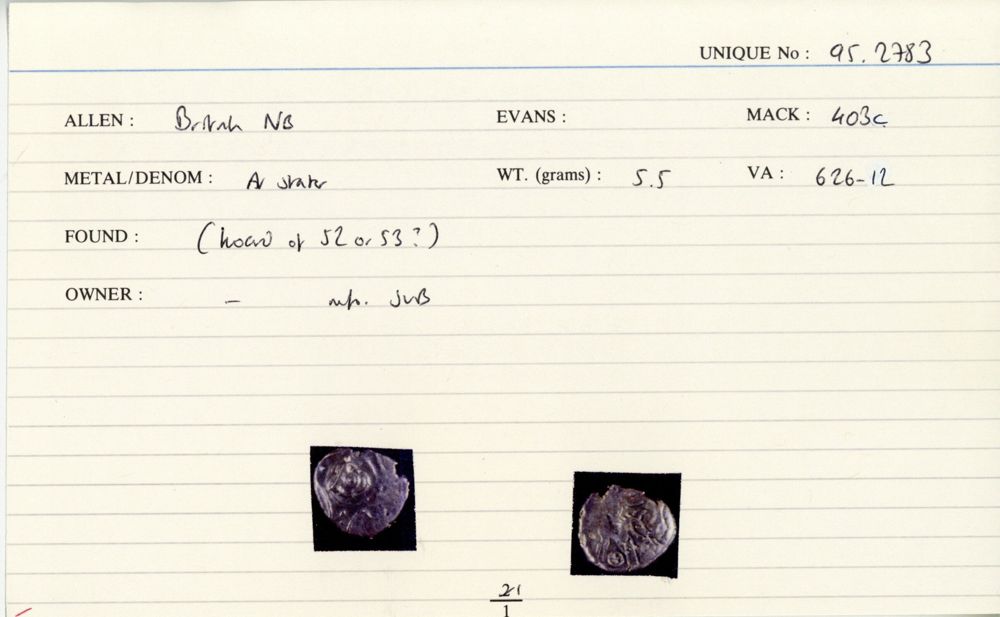 UNIQUE No : 95.2783
ALLEN : British NB EVANS : MACK : 403c
METAL/DENOM : stater WT. (grams) : 5.5 VA : 626-12
FOUND : (hoard of 52 or 53?)
OWNER : –
21
1